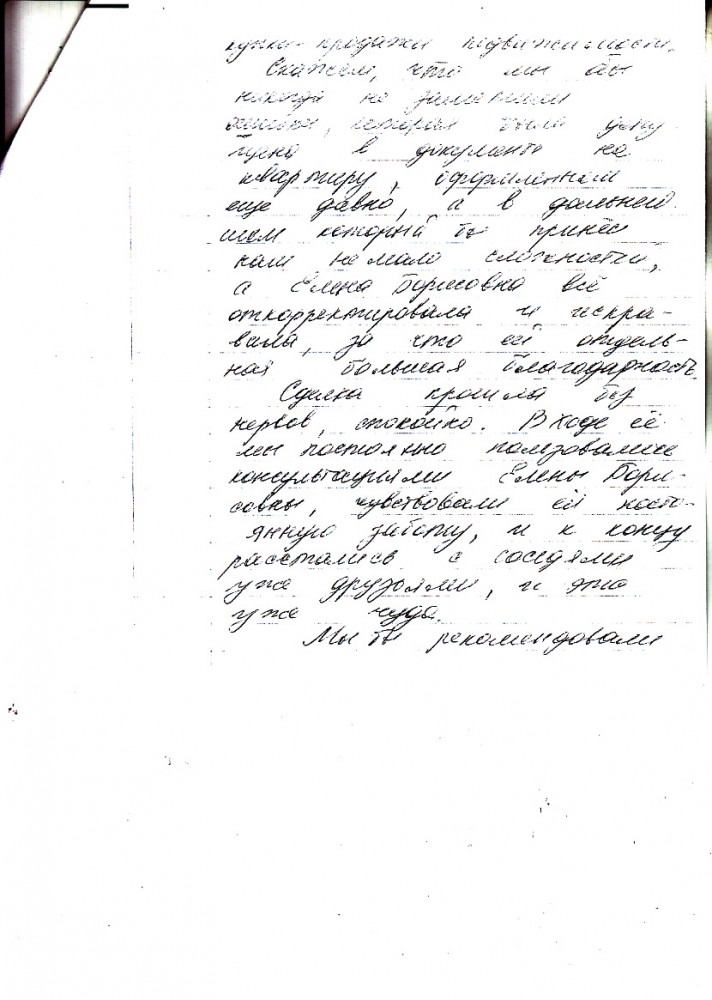 купли-продажи недвижимости.
Скажем, что мы бы
никогда не заметили
ошибки, которая была допу-
щена в документе на
квартиру, оформленном
еще давно, а в дальней-
шем который бы принёс
нам немало сложностей,
а Елена Борисовна всё
откорректировала и испра-
вила, за что ей отдель-
ная большая благодарность.
Сделка прошла без
нервов, спокойно. В ходе её
мы постоянно пользовались
консультациями Елены Бори-
совны, чувствовали её посто-
янную заботу, и к концу
расстались с соседями
уже друзьями, и это
уже чудо.
Мы бы рекомендовали